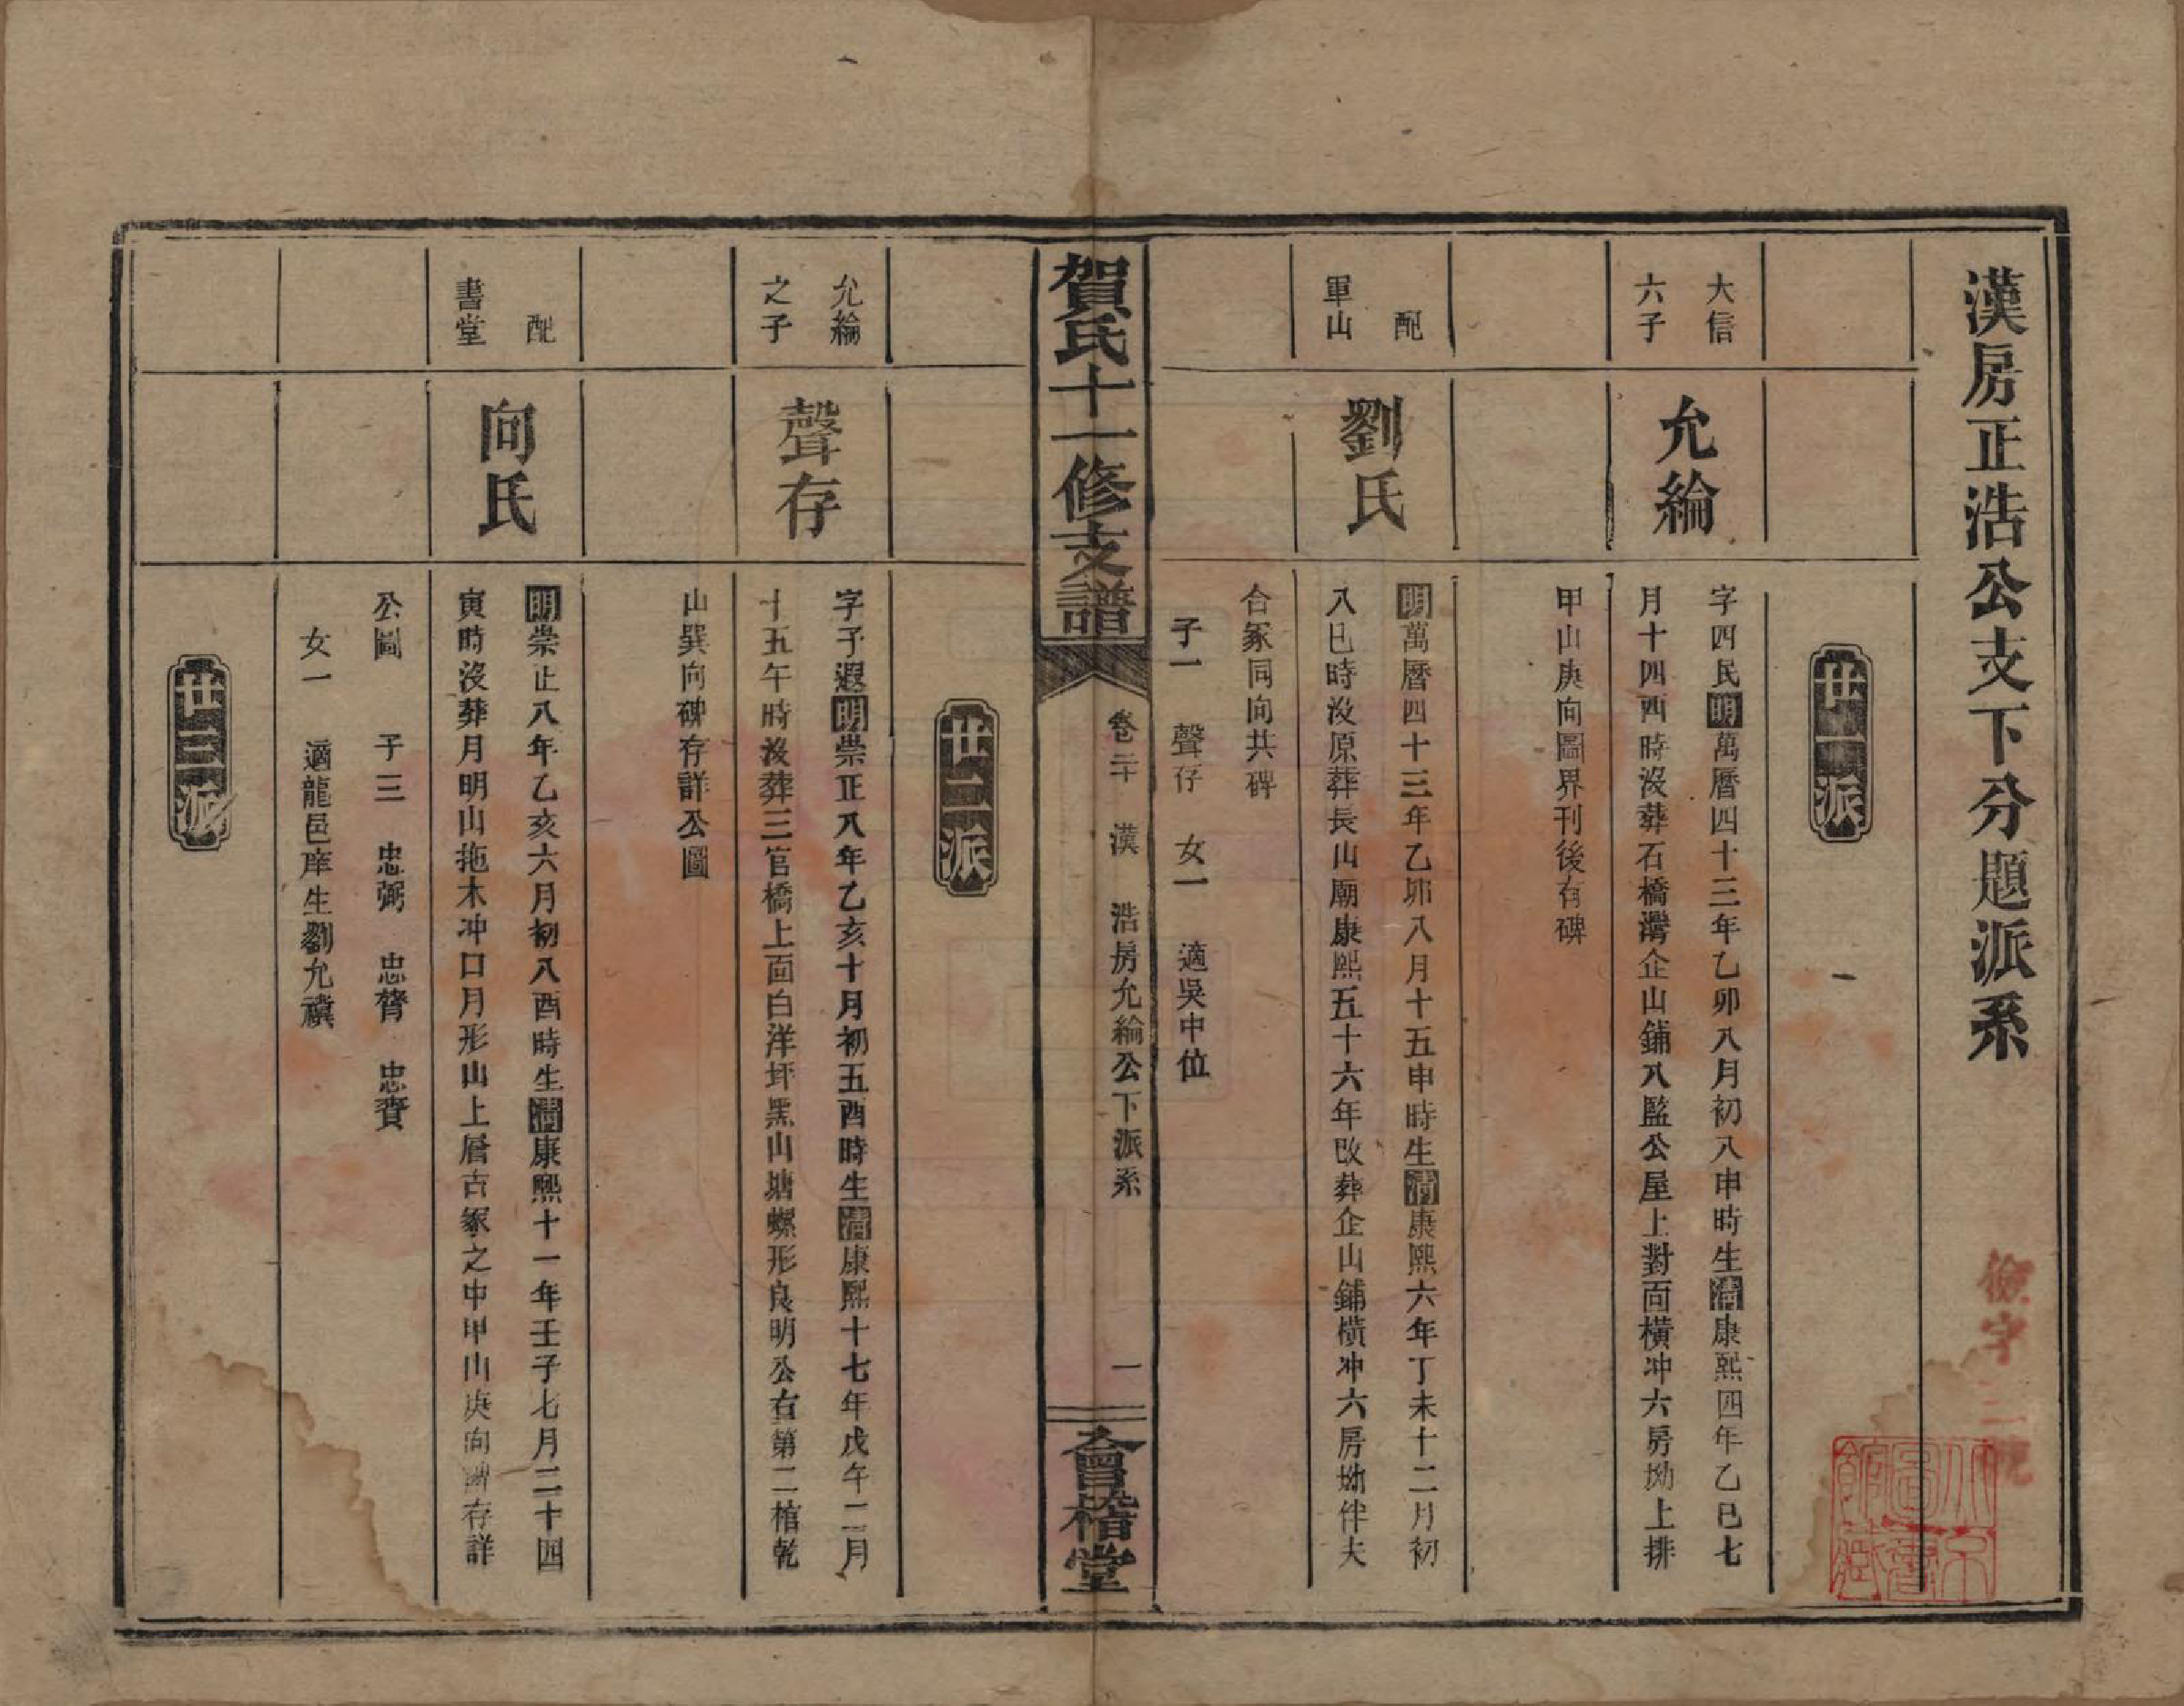 漢房正浩公支下分題派系
世一派
大信
六子
允綸
字四民明萬曆四十三年乙卯八月初八申時生清康熙四年乙巳七
月十四酉時沒葬石橋灣企山鋪八監公屋上對面橫冲六房坳上排
甲山庚向圖界刊後有碑
配
軍山
劉氏
明萬曆四十三年乙卯八月十五申時生清康熙六年丁未十二月初
八巳時沒原葬長山廟康熙五十六年改葬企山鋪橫冲六房坳伴夫
合冢同向共碑
子一 聲存 女一 適吳中位
賀氏十一修支譜
卷二十 漢 浩房允綸公下派系
一
會稽堂
世二派
允綸
之子
聲存
字子遐明崇正八年乙亥十月初五酉時生清康熙十七年戊午二月
十五午時沒葬三官橋上面白洋坪黑山塘螺形良明公右第二棺乾
山巽向碑存詳公圖
配
書堂
向氏
明崇正八年乙亥六月初八酉時生清康熙十一年壬子七月二十四
寅時沒葬月明山拖木冲口月形山上層古冢之中甲山庚向碑存詳
公圖 子三 忠弼 忠贊 忠賚
女一 適龍邑庠生劉允禩
世三派
儉字二號